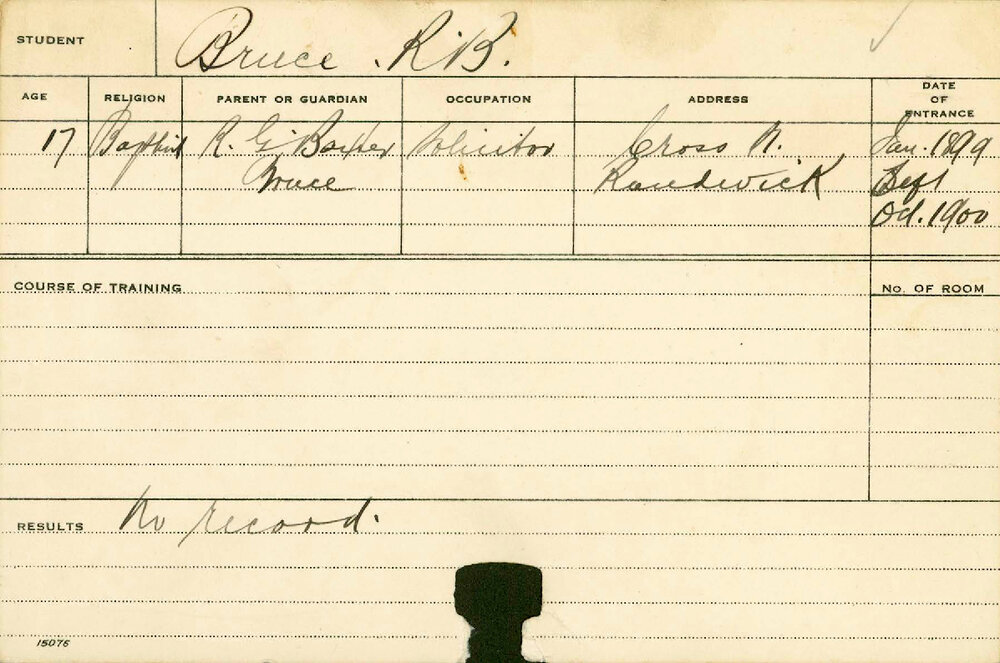 STUDENT Bruce. R.B.
AGE RELIGION PARENT OR GUARDIAN OCCUPATION ADDRESS DATE OF ENTRANCE
17 Baptist R. G. Baxter Solicitor Cross N. Jan. 1899
Bruce Randwick Left
Oct. 1900
COURSE OF TRAINING No. OF ROOM
RESULTS No record.
15076